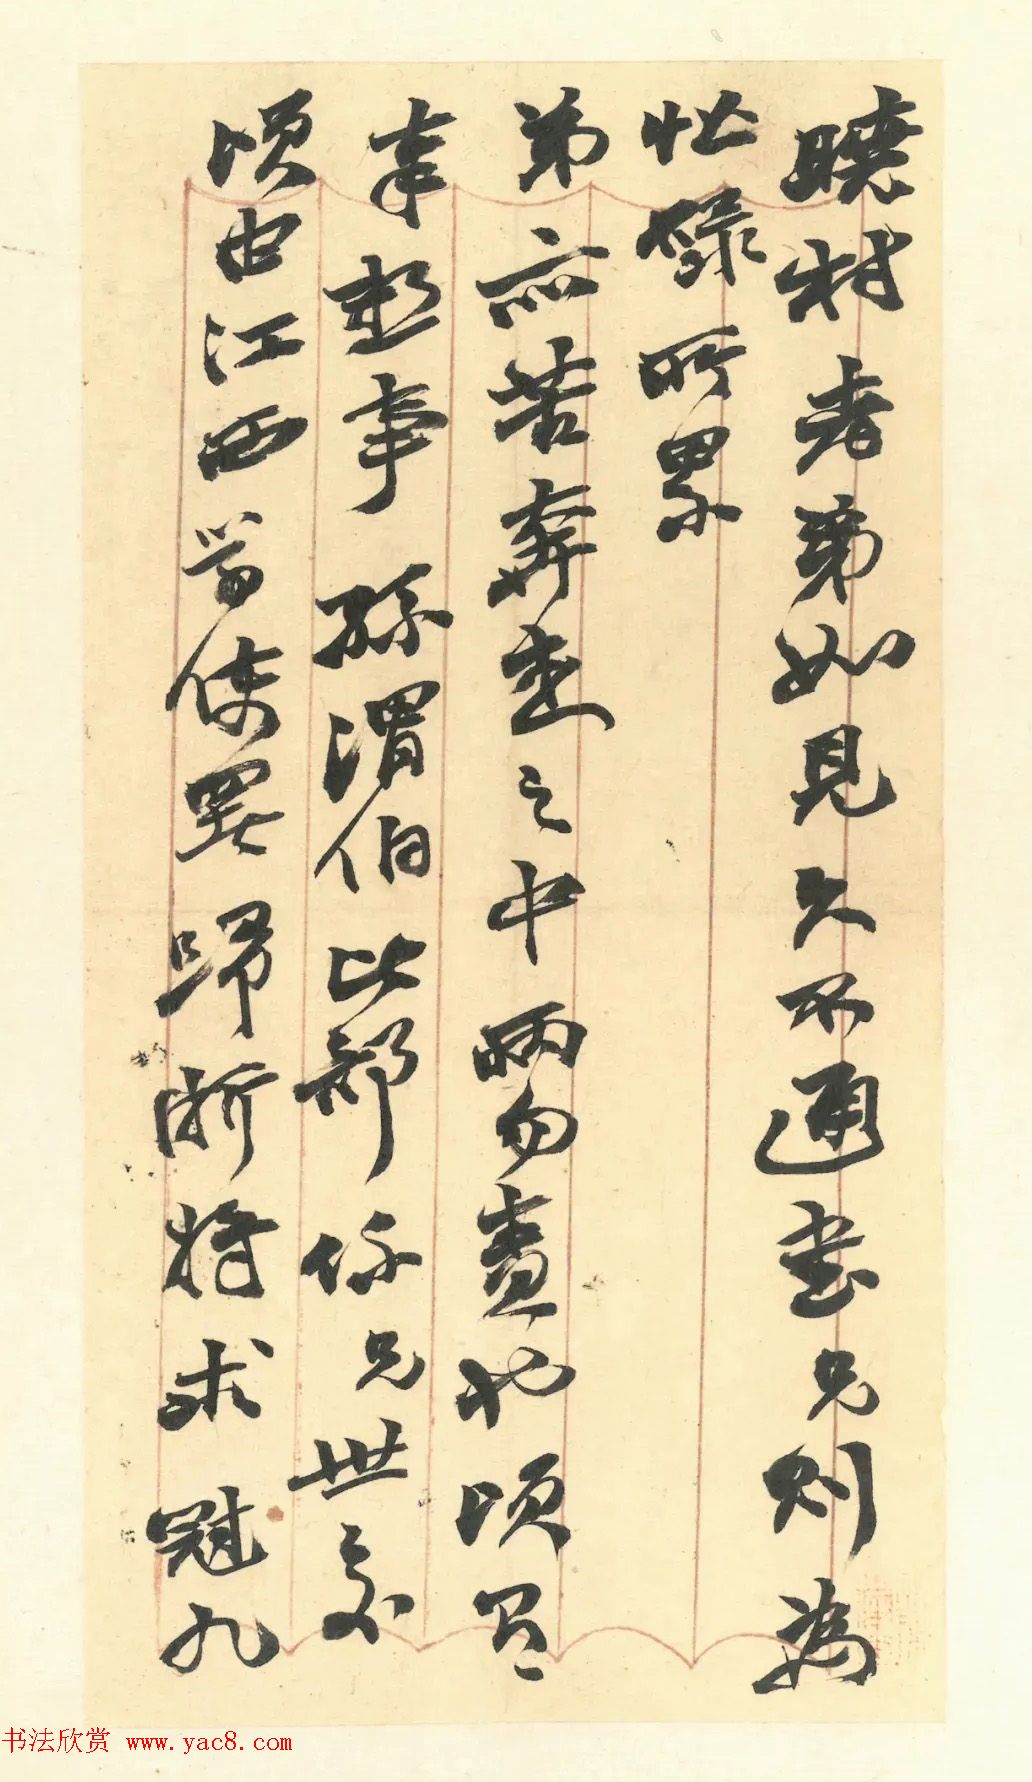 曉村老弟如見久不通書兄則為
忙碌所累
弟亦苦奔走之中兩勿責也頃
奉懇事孫渭伯比部係兄世交
頃由江西學使署歸浙將求冠九
书法欣赏 www.yac8.com